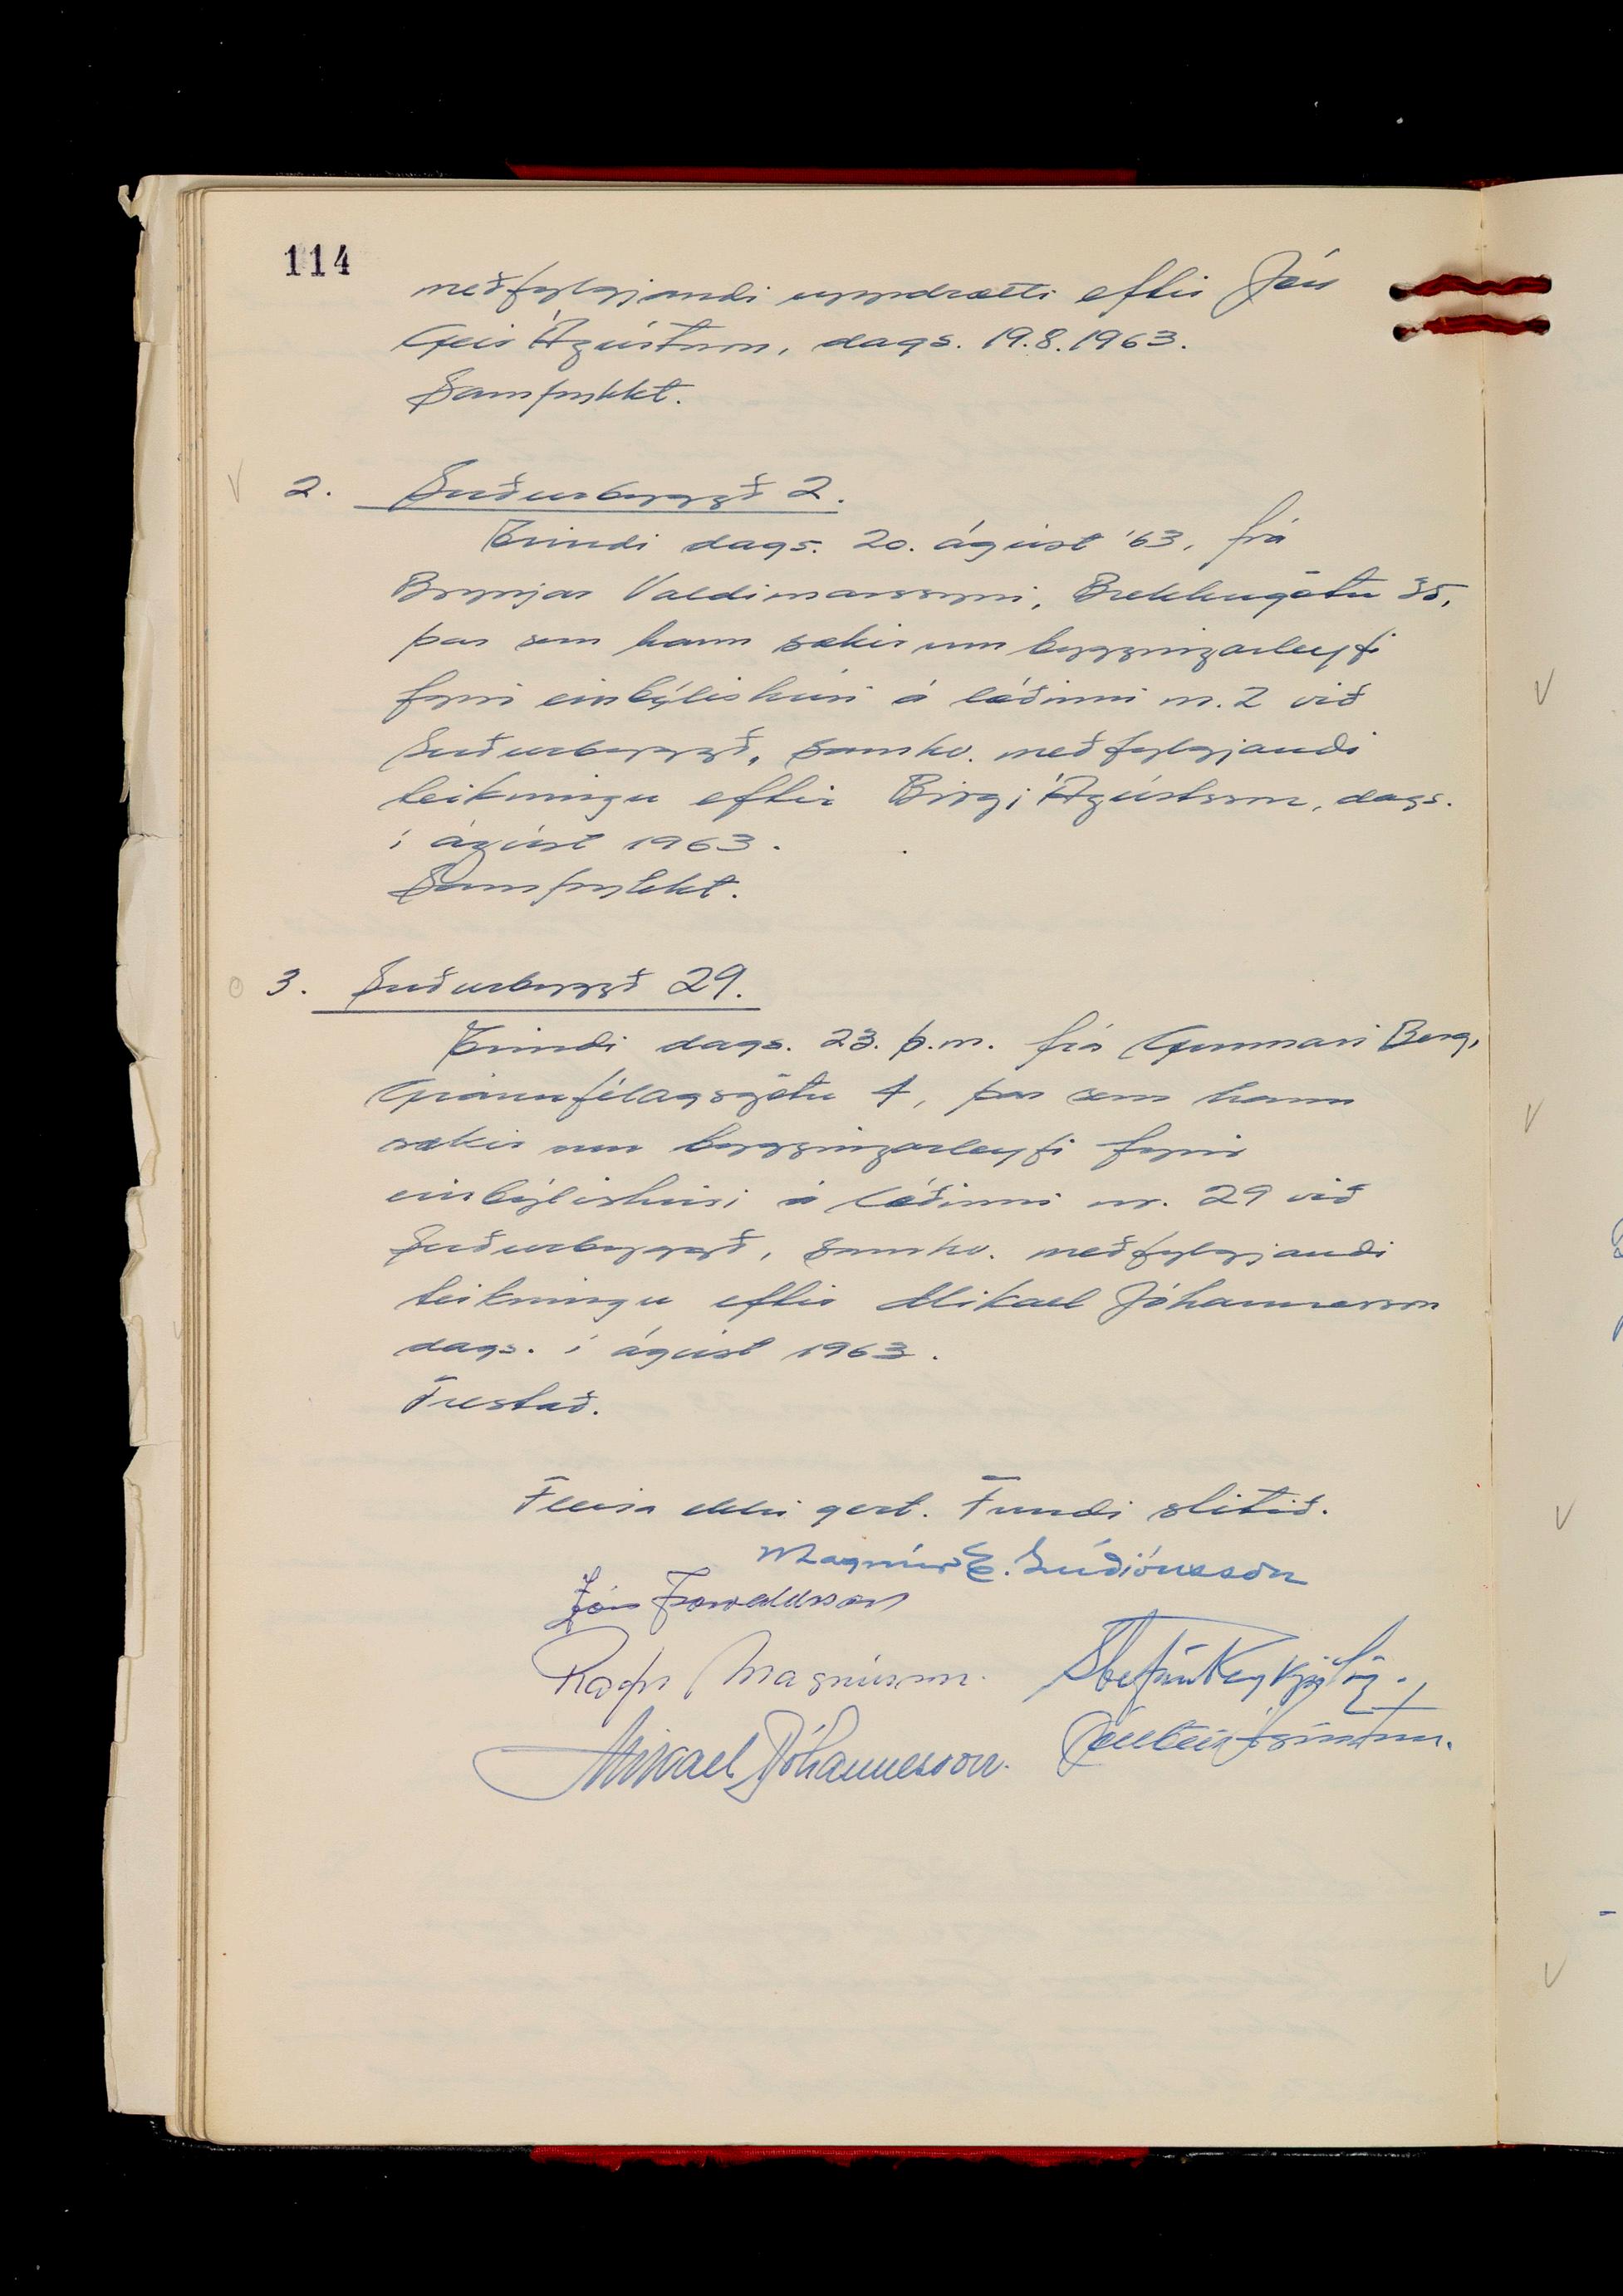 114
meðfylgjandi uppdrætti eftir Jón
Geir Ágústsson, dags. 19.8.1963.
Samþykkt.
2. Suðurbyggð 2.
Erindi dags. 20. ágúst '63, frá
Brynjar Valdimarssyni, Brekkugötu 35,
þar sem hann sækir um byggingarleyfi
fyrir einbýlishúsi á lóðinni nr. 2 við
Suðurbyggð, samkv. meðfylgjandi
teikningu eftir Birgi Ágústsson, dags.
í ágúst 1963.
Samþykkt.
3. Suðurbyggð 29.
Erindi dags. 23. þ.m. frá Gunnari Berg,
Gránufélagsgötu 4, þar sem hann
sækir um byggingarleyfi fyrir
einbýlishúsi á lóðinni nr. 29 við
Suðurbyggð, samkv. meðfylgjandi
teikningu eftir Mikael Jóhannesson
dags. í ágúst 1963.
Frestað.
Fleira ekki gert. Fundi slitið.
Magnús E. Guðjónsson
Jón Þorvaldsson
Magnússon.
Stefán Reykjalín.
Mikael Jóhannesson.
Jón Geir Ágústsson.